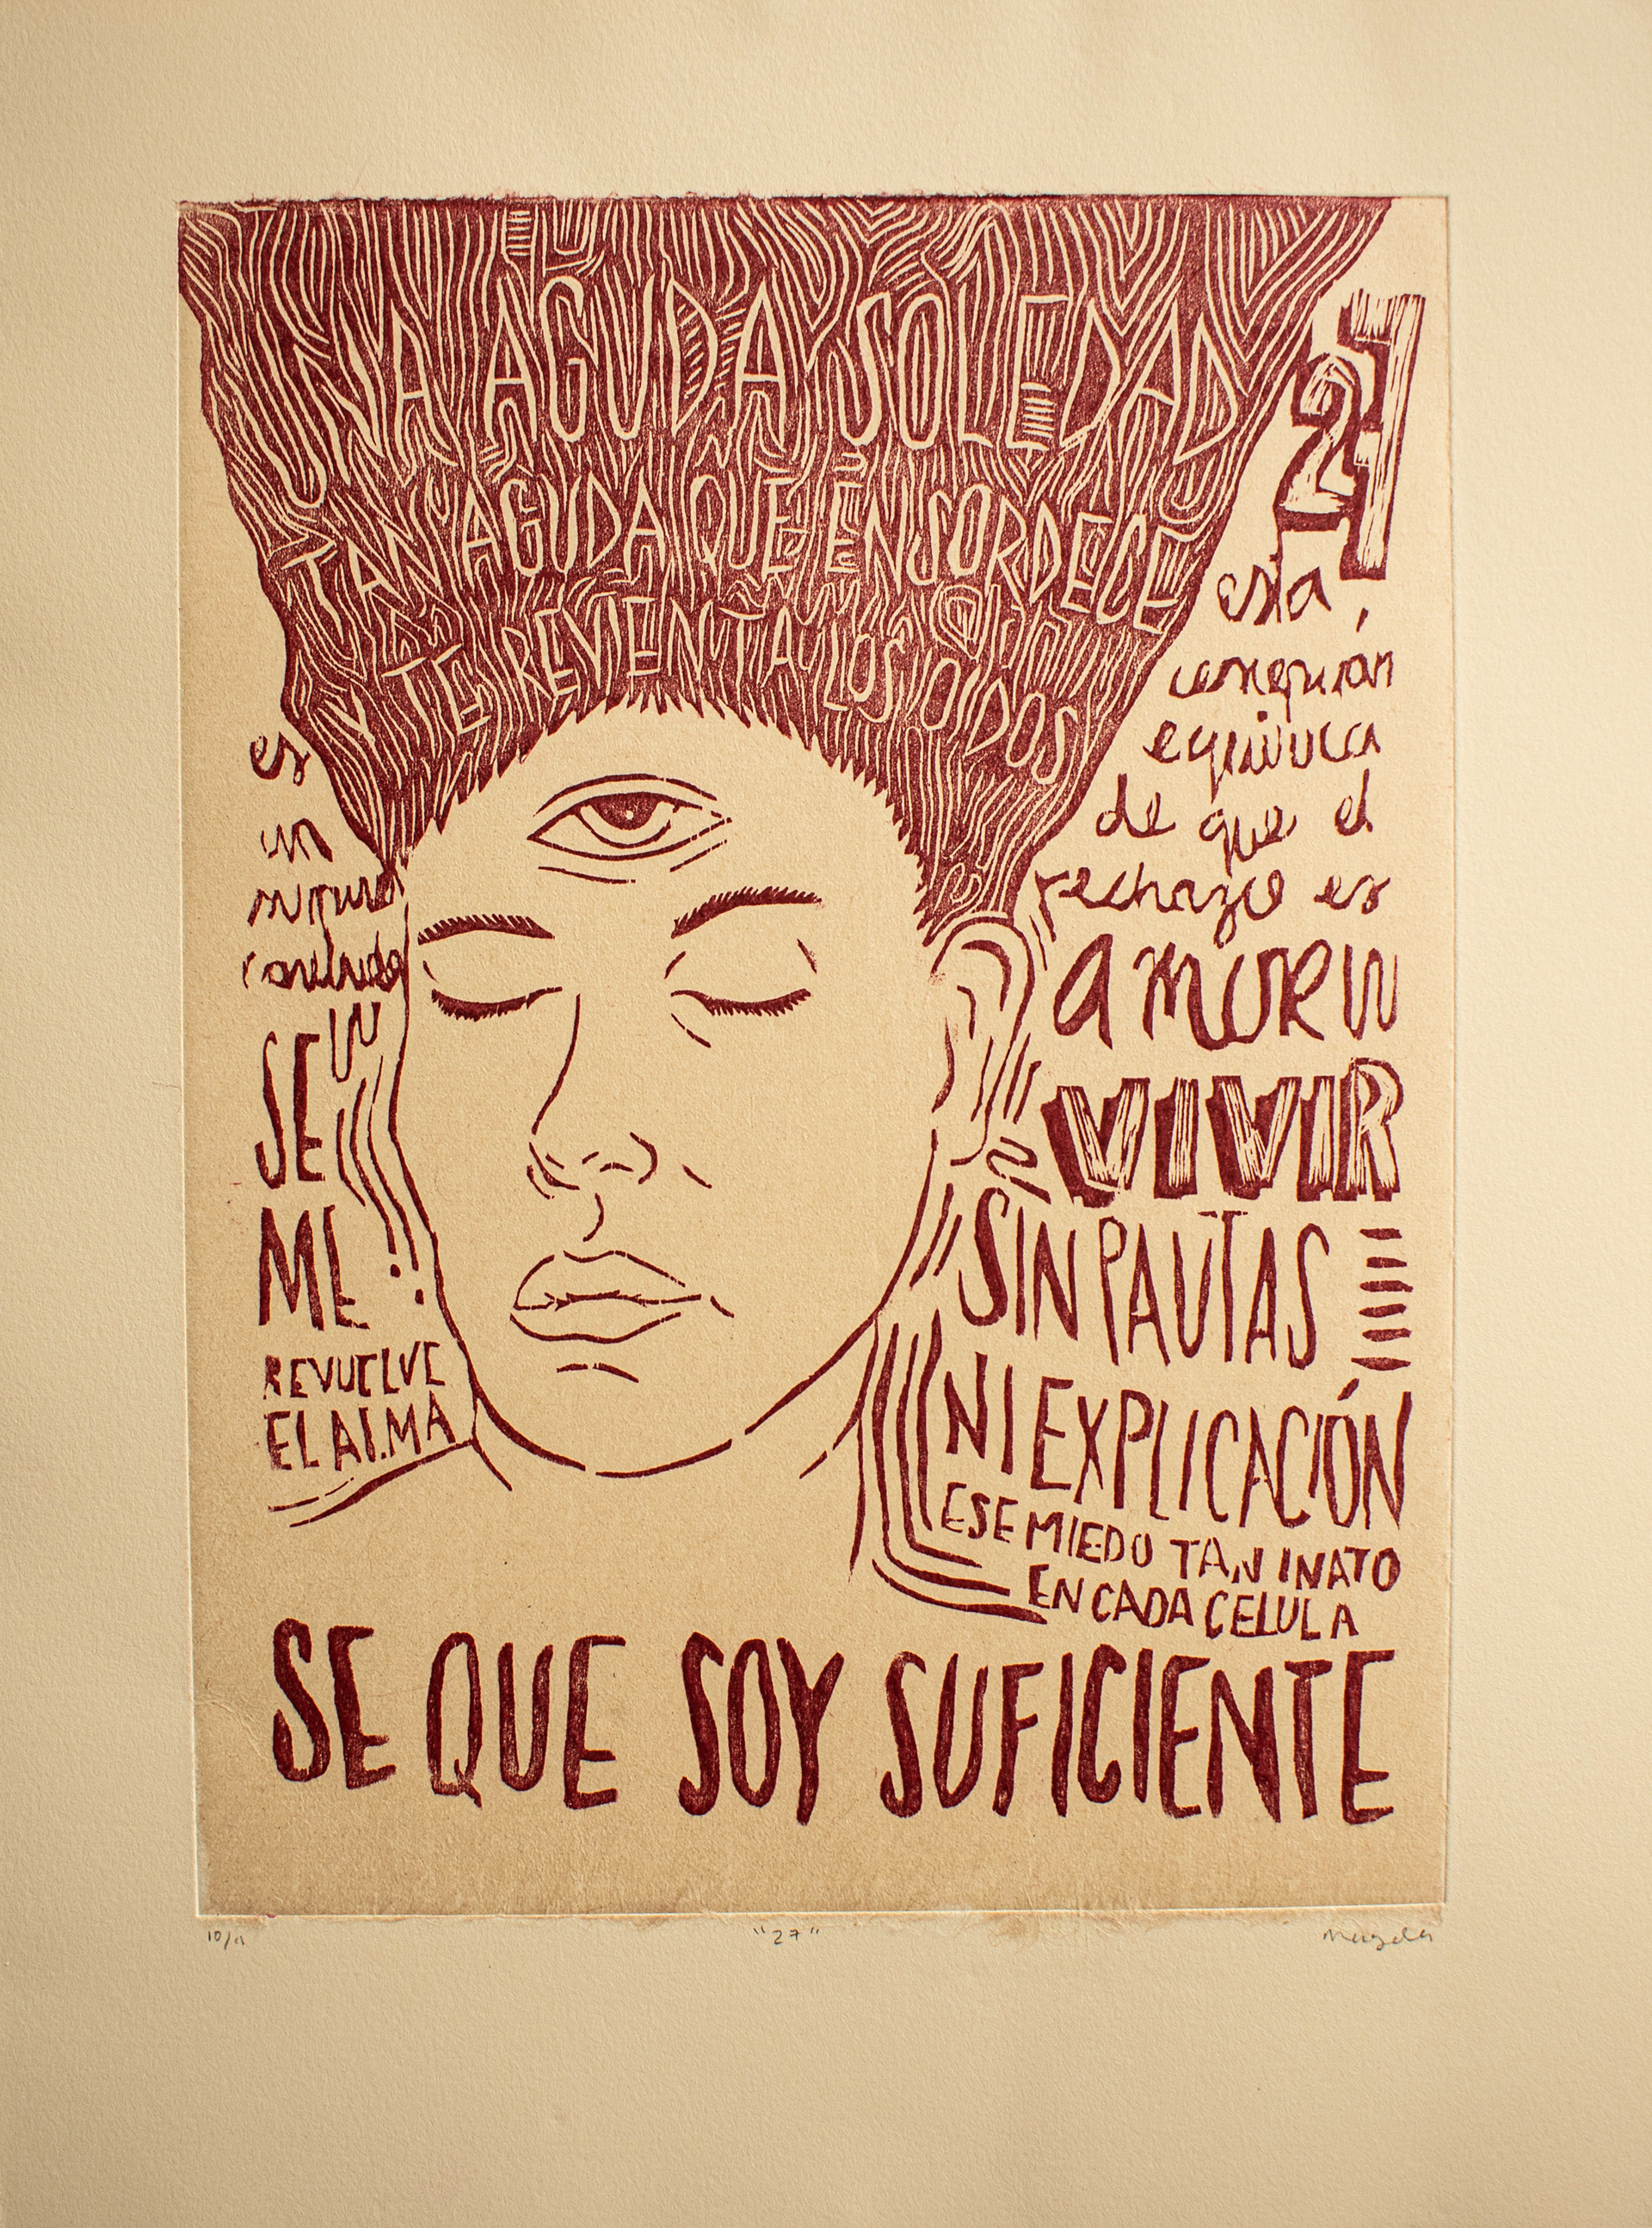 UNA AGUDA SOLEDAD
TAN AGUDA QUE ENSORDECE
Y TE REVIENTA LOS OIDOS
es
un
SE
ME
REVUELVE
EL ALMA
27
esta
equivoca
de que el
rechazo es
amor
VIVIR
SIN PAUTAS
NI EXPLICACIÓN
ESE MIEDO TAN INATO
EN CADA CELULA
SE QUE SOY SUFICIENTE
"27"